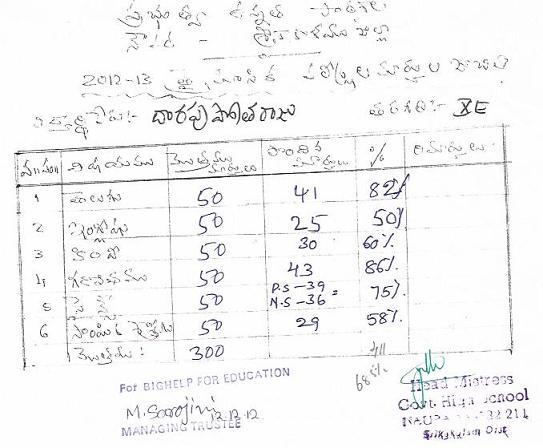 ప్రభుత్వ ఉన్నత పాఠశాల
నౌపడ - శ్రీకాకుళం జిల్లా
2012-13 త్రైమాసిక పరీక్షల మార్కుల జాబితా
విద్యార్థి పేరు:- దారపు పోతరాజు తరగతి:- X E
వ.సం విషయము మొత్తము మార్కులు పొందిన మార్కులు % రిమార్కులు
1 తెలుగు 50 41 82%
2 ఇంగ్లీషు 50 25 50%
3 హిందీ 50 30 60%
4 గణితము 50 43 86%
5 సైన్స్ 50 P.S-39 N.S-36 = 75%
6 సాంఘిక శాస్త్రము 50 29 58%
మొత్తము: 300
68%
For BIGHELP FOR EDUCATION
M. Sarojini 12.12.12
MANAGING TRUSTEE
Head Mistress
Govt. High School
532 211
Srikakulam Dist